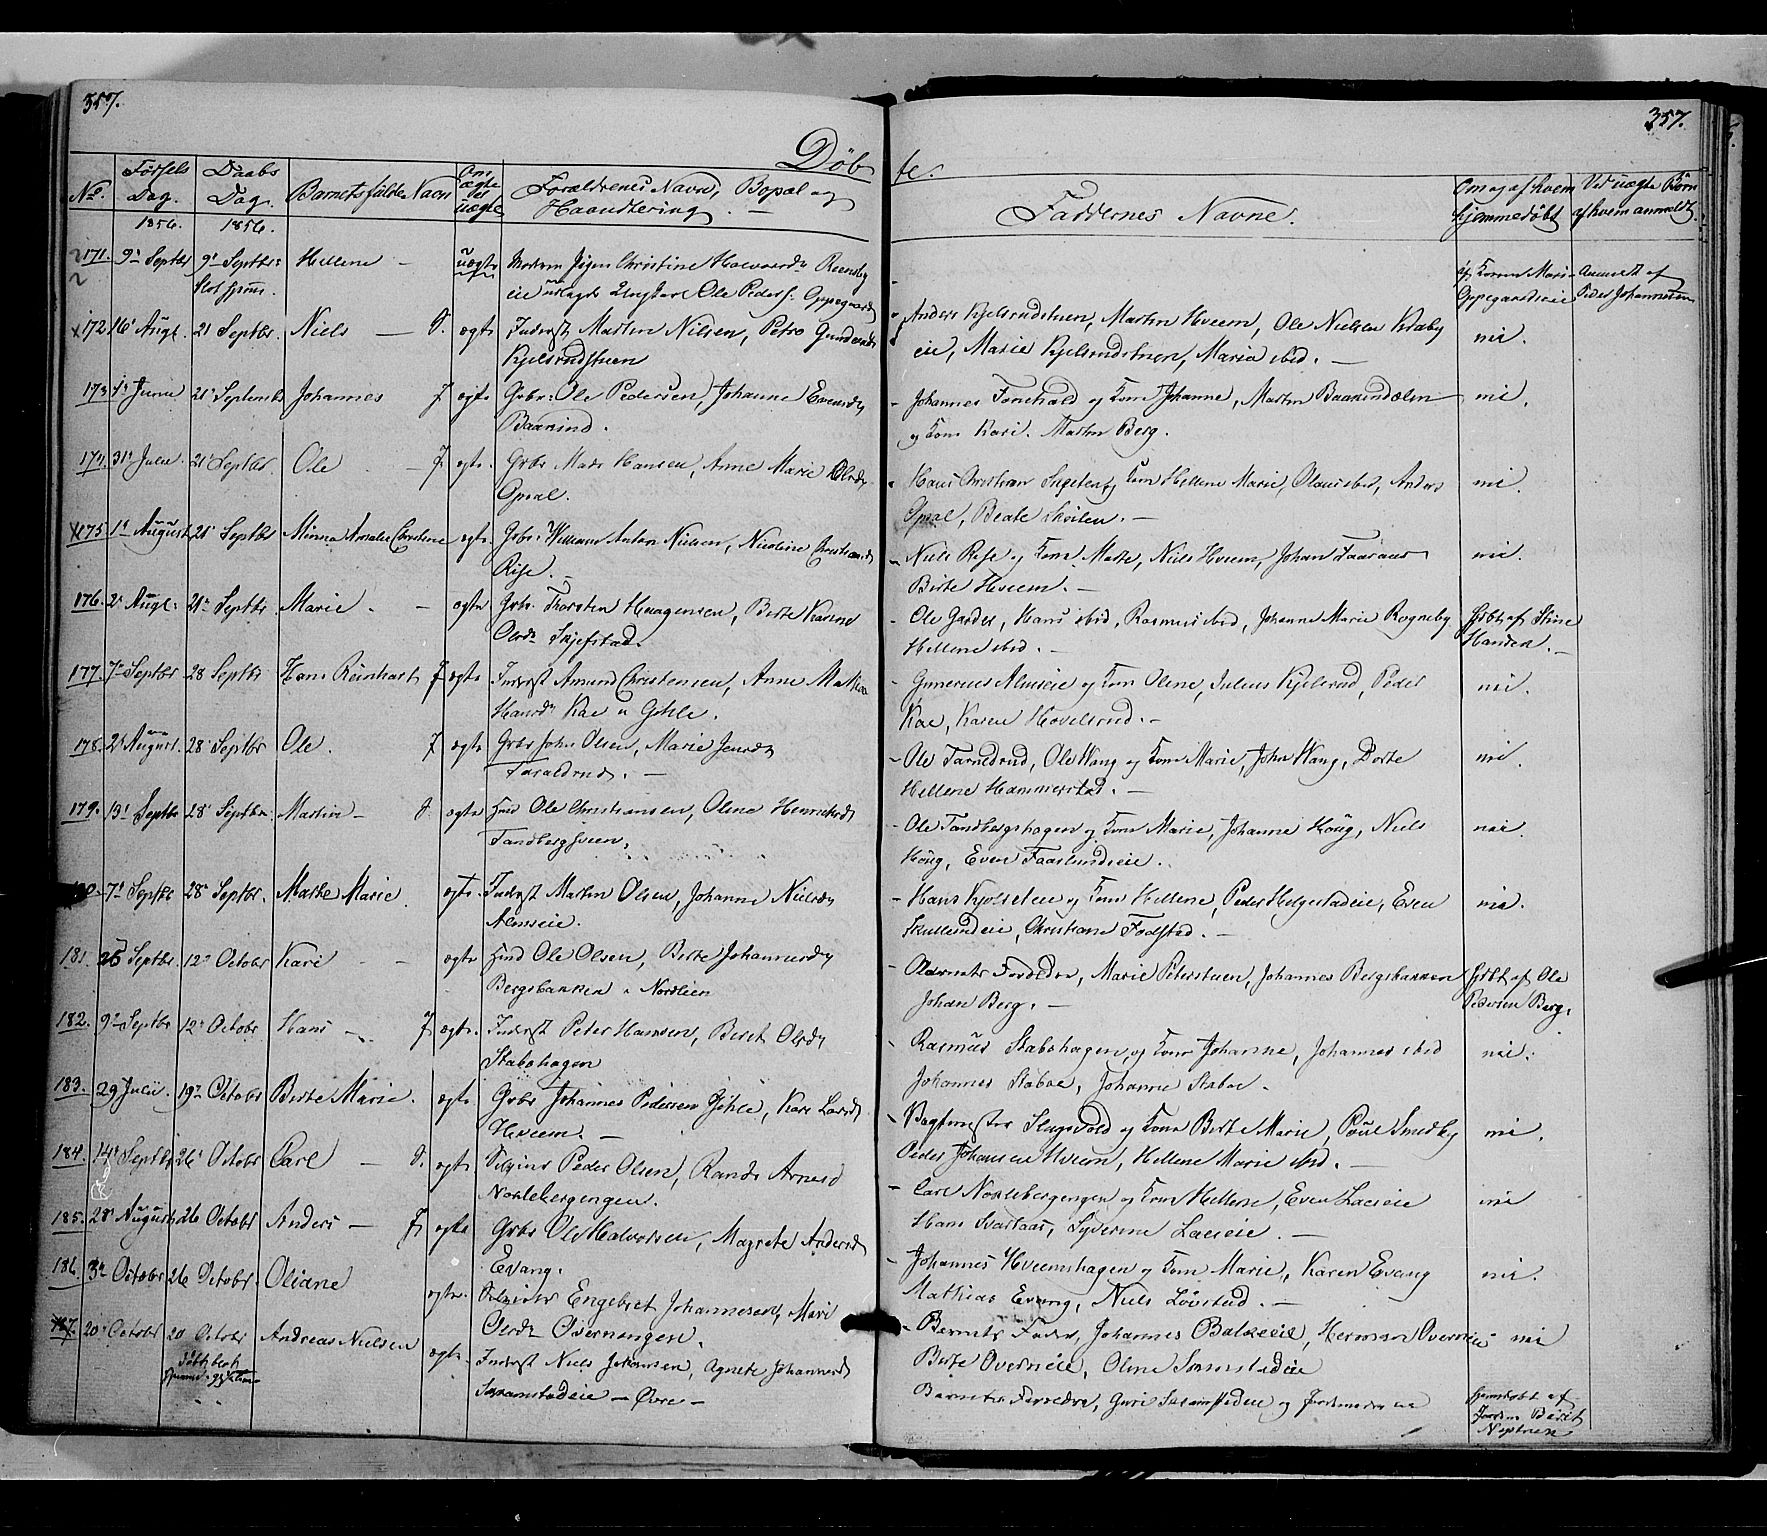 357.
357.
Døbte.
No. Fødsels Dag. Daabs Dag. Barnets fulde Navn Om ægte el uægte Forældrenes Navn, Bopæl og Haandtering. Faddernes Navne. Om og af hvem hjemmedøbt Ved uægte Børn af hvem anmeldt.
1856. 1856.
171. 9 Septbr 9 Septbr Hellene uægte Moderen Pigen Christine Halvorsdr Reensby
eie udlagte Ungkarl Ole Peders. Oppegaard
af Konen Marie Oppegaardseie Anmeldt af Peder Johannesen
172 16 Augt. 21 Septbr. Niels ægte Inderst Martin Nilsen, Petro Gundersdr
Kjelsrudstuen
Anders Kjelsrudstuen, Martin Hveem, Ole Nielsen Kraby
eie, Marie Kjelsrudstuen, Maria ibid. nei
173 Juni 21 Septemb Johannes ægte Grbr. Ole Pedersen, Johanne Evensdr
Baarind.
Johannes Fonehald og Kone Johanne, Martin Baarindalen
og Kone Kari. Martin Berg. nei.
174. 31 Juli 21 Septbr. Ole ægte. Grbr Mads Hansen, Anne Marie Olsdr
Opsal.
Hans Christian og Kone Hellene Marie, Olaus ibid, Anders
Opsal, Beate Skolen. nei.
175 1 August 21 Septbr Minna Amalie Christine ægte. Grbr. William Anton Nielsen, Nicoline Christiansdr
Rise.
Niels Rise og Kone Marte, Niels Hveem, Johan Faaraas
Birte Hveem. nei.
176. 2 Augt. 21 Septbr Marie. ægte Grbr. Thorsten Haagensen, Berte Karine
Olsdr Skjefstad.
Ole Garder, Hans ibid, Rasmus ibid, Johanne Marie Rogneby
Hellene ibid. hjdbt af Stine Handen.
177. 7 Septbr 28 Septbr Hans Reinhart ægte Inderst Amund Christensen, Anne Mathea
Hansdr Kae u Gihle.
Gunerius Almseie og Kone Oline, Julius Kjelsrud, Peder
Kae, Karen Hovelsrud. nei.
178. 2 August. 28 Septbr Ole. ægte Grbr John Olsen, Marie Jensdr
Faraldrud.
Ole Farnedrud, Ole Wang og Kone Marie, John Wang, Dorte
Hellene Hammerstad. nei.
179. 13 Septbr 28 Septbr Martin ægte Hmd Ole Christiansen, Olina Henriksdr
Tandbergstuen,
Ole Tandbergshagen og Kone Marie, Johanne Haug, Niels
Haug, Even Faarlundeie. nei.
180. 7 Septbr 28 Septbr. Marthe Marie ægte. Inderst Martin Olsen, Johanne Nielsdr
Almseie.
Hans Kjølseteie og Kone Hellene, Peder Helgestadeie, Even
Skullundeie, Christiane Fodstad. nei.
181. 25 Septbr. 12 Octobr Kari ægte Hmd Ole Olsen, Berte Johannesdr
Bergsbakken u Nordlien
Barnets Forældre, Marie Peterstuen, Johannes Bergsbakken
Johan Berg. hjdbt af Ole Pedersen Berg.
182. 9 Septbr 12 Octobr Hans ægte. Inderst Peter Hansen, Beret Olsdr
Stabohagen
Rasmus Stabohagen, og Kone Johanne, Johannes ibid
Johannes Staboe, Johanne Staboe. nei.
183. 29 Julii. 19 Octobr Berte Marie. ægte. Grbr Johannes Pedersen Gihle, Kari Larsdr
Hveem.
Vagtmester Slagsvold og Kone Berte Marie, Poul Smedby
Peder Johansen Hveem, Hellene Marie ibid. nei.
184. 14 Septbr 26 Octobr Carl ægte Selveier Peder Olsen, Randi Arnesd
Noklebergengen.
Carl Noklebergengen og Kone Hellene, Even Laeseie
Hans Svartaas, Syverine Laeseie. nei
185. 28 August 26 Octobr Anders ægte Grbr Ole Halvorsen, Magrete Andersd
Evang.
Johannes Hveemshagen og Kone Marie, Karen Evang
Mathias Evang, Niels Løvstad. nei.
186. 3 Octobr 26 Octobr. Oliane ægte. Selveier Engebret Johannesen, Mari
Olsdr Overnengen.
Barnets Fader, Johannes Balkeeie, Herman Overneeie
Berte Overneeie, Oline Sommestadeie nei
187. 20 Octobr 20 Octobr Andreas Nielsen ægte Inderst Niels Johansen, Agnete Johannesdr
Sommestadeie Øvre
Barnets Forældre, Guri og Jordemoderen
hjemdøbt af Jordm. Berit